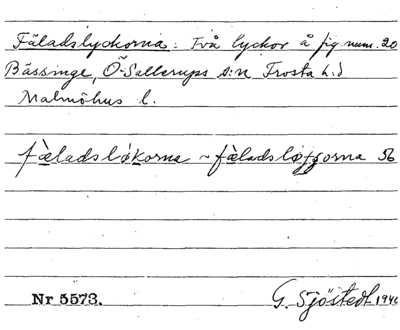 Fäladslyckorna: Två lyckor å fig. num. 20
Bässinge, Ö. Sallerups s:n Frosta h:d
Malmöhus l.
fä̀ladslǿkorna ~ fä̀ladslǿjgorna 56
Nr 5573.
G. Sjöstedt 1940